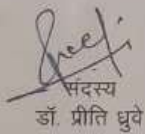 सदस्य
डॉ. प्रीति धुवे